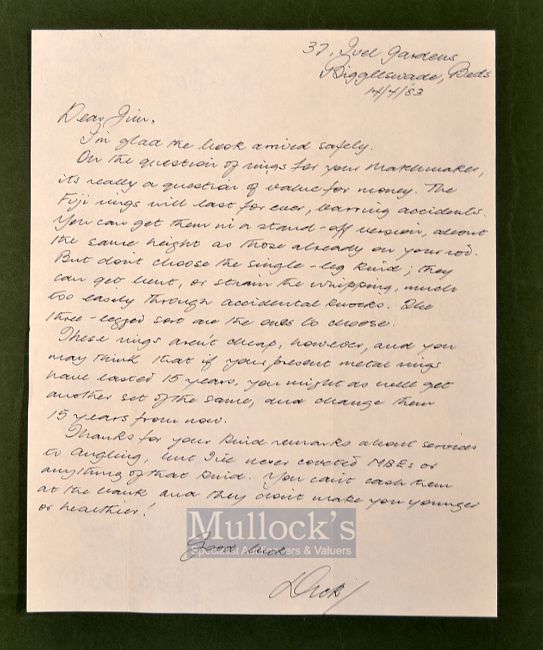 37, Ivel Gardens
Biggleswade, Beds
14/7/83
Dear Jim,
I'm glad the book arrived safely.
On the question of rings for your Matchmaker,
it's really a question of value for money. The
Fiji rings will last for ever, barring accidents.
You can get them in a stand-off version, about
the same height as those already on your rod.
But don't choose the single-leg kind; they
can get bent, or strain the whipping, much
too easily through accidental knocks. The
three-legged sort are the ones to choose.
These rings aren't cheap, however, and you
may think that if your present metal rings
have lasted 15 years, you might as well get
another set of the same, and change them
15 years from now.
Thanks for your kind remarks about services
to angling, but I've never coveted MBEs or
anything of that kind. You can't cash them
at the bank and they don't make you younger
or healthier!
Mullock's
Specialist Auctioneers & Valuers
Good luck
Dick